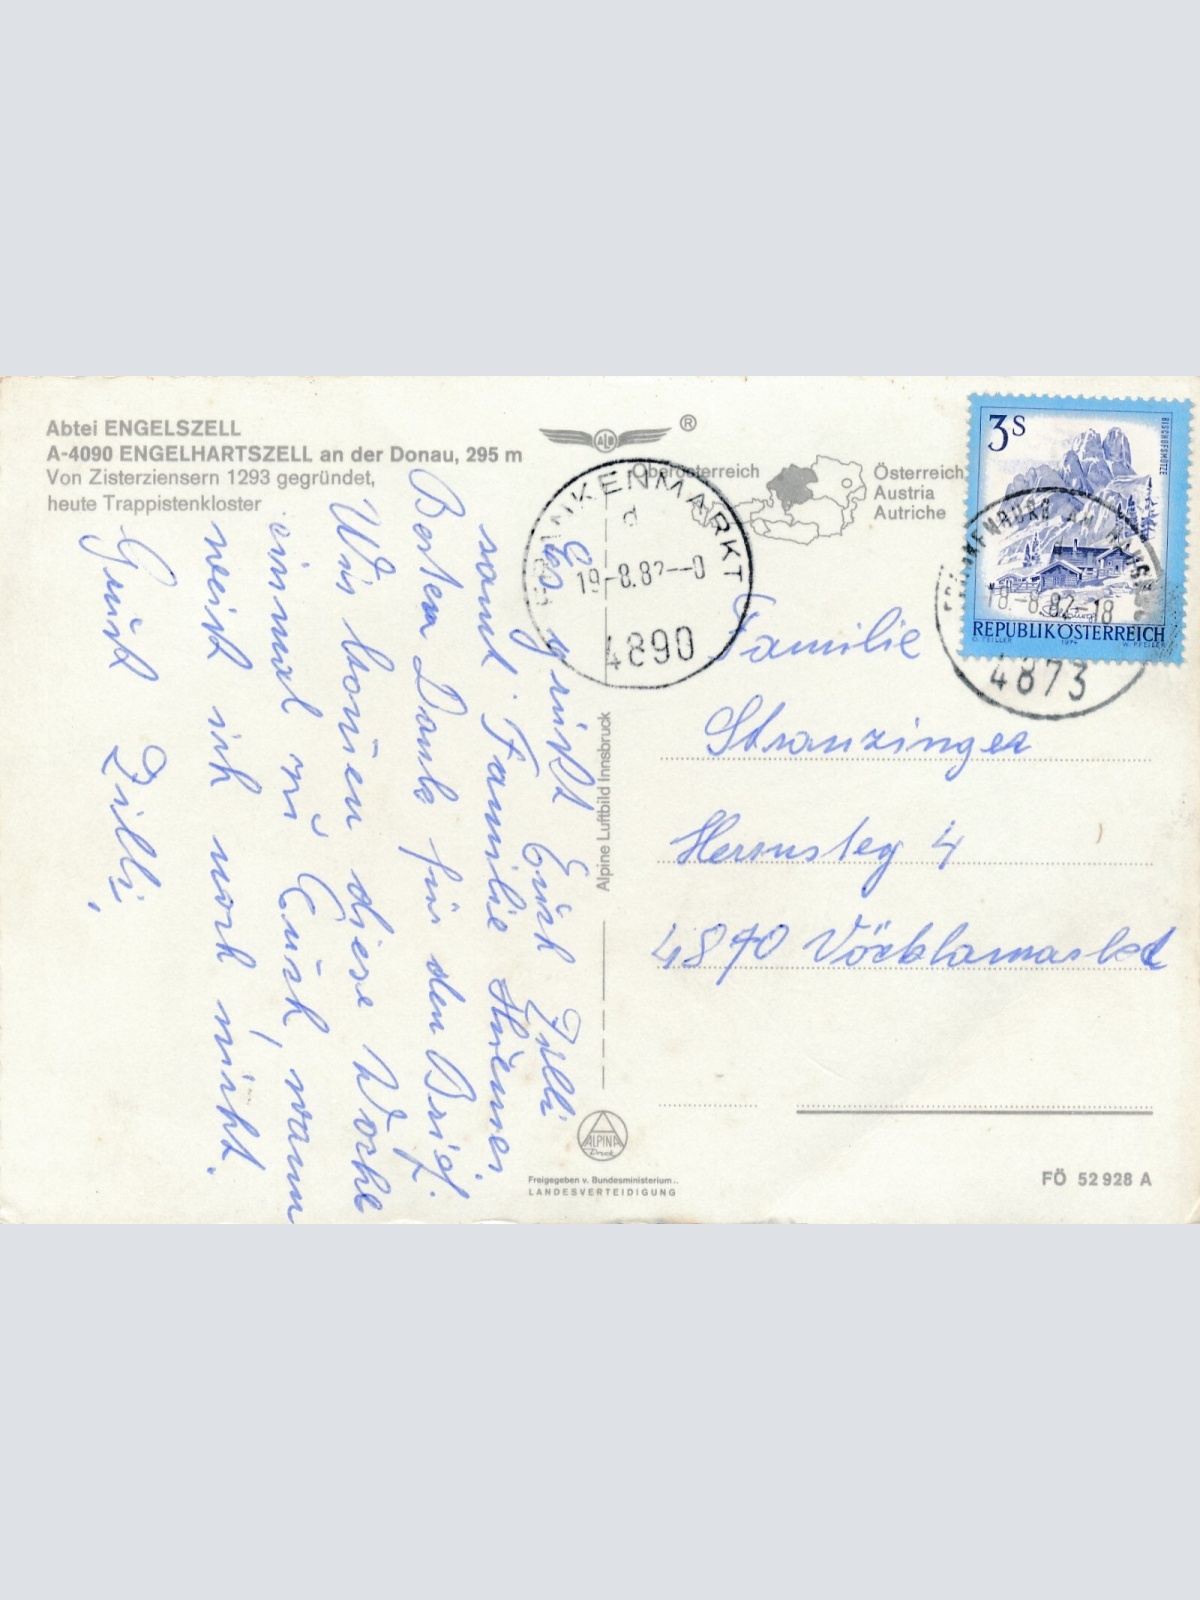 Abtei ENGELSZELL
A-4090 ENGELHARTSZELL an der Donau, 295 m
Von Zisterziensern 1293 gegründet,
heute Trappistenkloster
ALB
®
Oberösterreich
Österreich
Austria
Autriche
FRANKENMARKT
d
19.-8.82--0
4890
3S
BISCHOFSMÜTZE
Salzburg
REPUBLIK ÖSTERREICH
1974
FRANKENBURG AM HAUSR
18.-8.82-18
4873
Es grüßt Euch
samt Familie
Besten Dank für den Brief.
Wir kommen diese Woche
einmal zu Euch, wann
weiß ich noch nicht.
Gruß Zilli
Familie
Stranzinger
Herrnsteg 4
4870 Vöcklamarkt
Alpine Luftbild Innsbruck
ALPINA
Druck
Freigegeben v. Bundesministerium..
LANDESVERTEIDIGUNG
FÖ 52 928 A